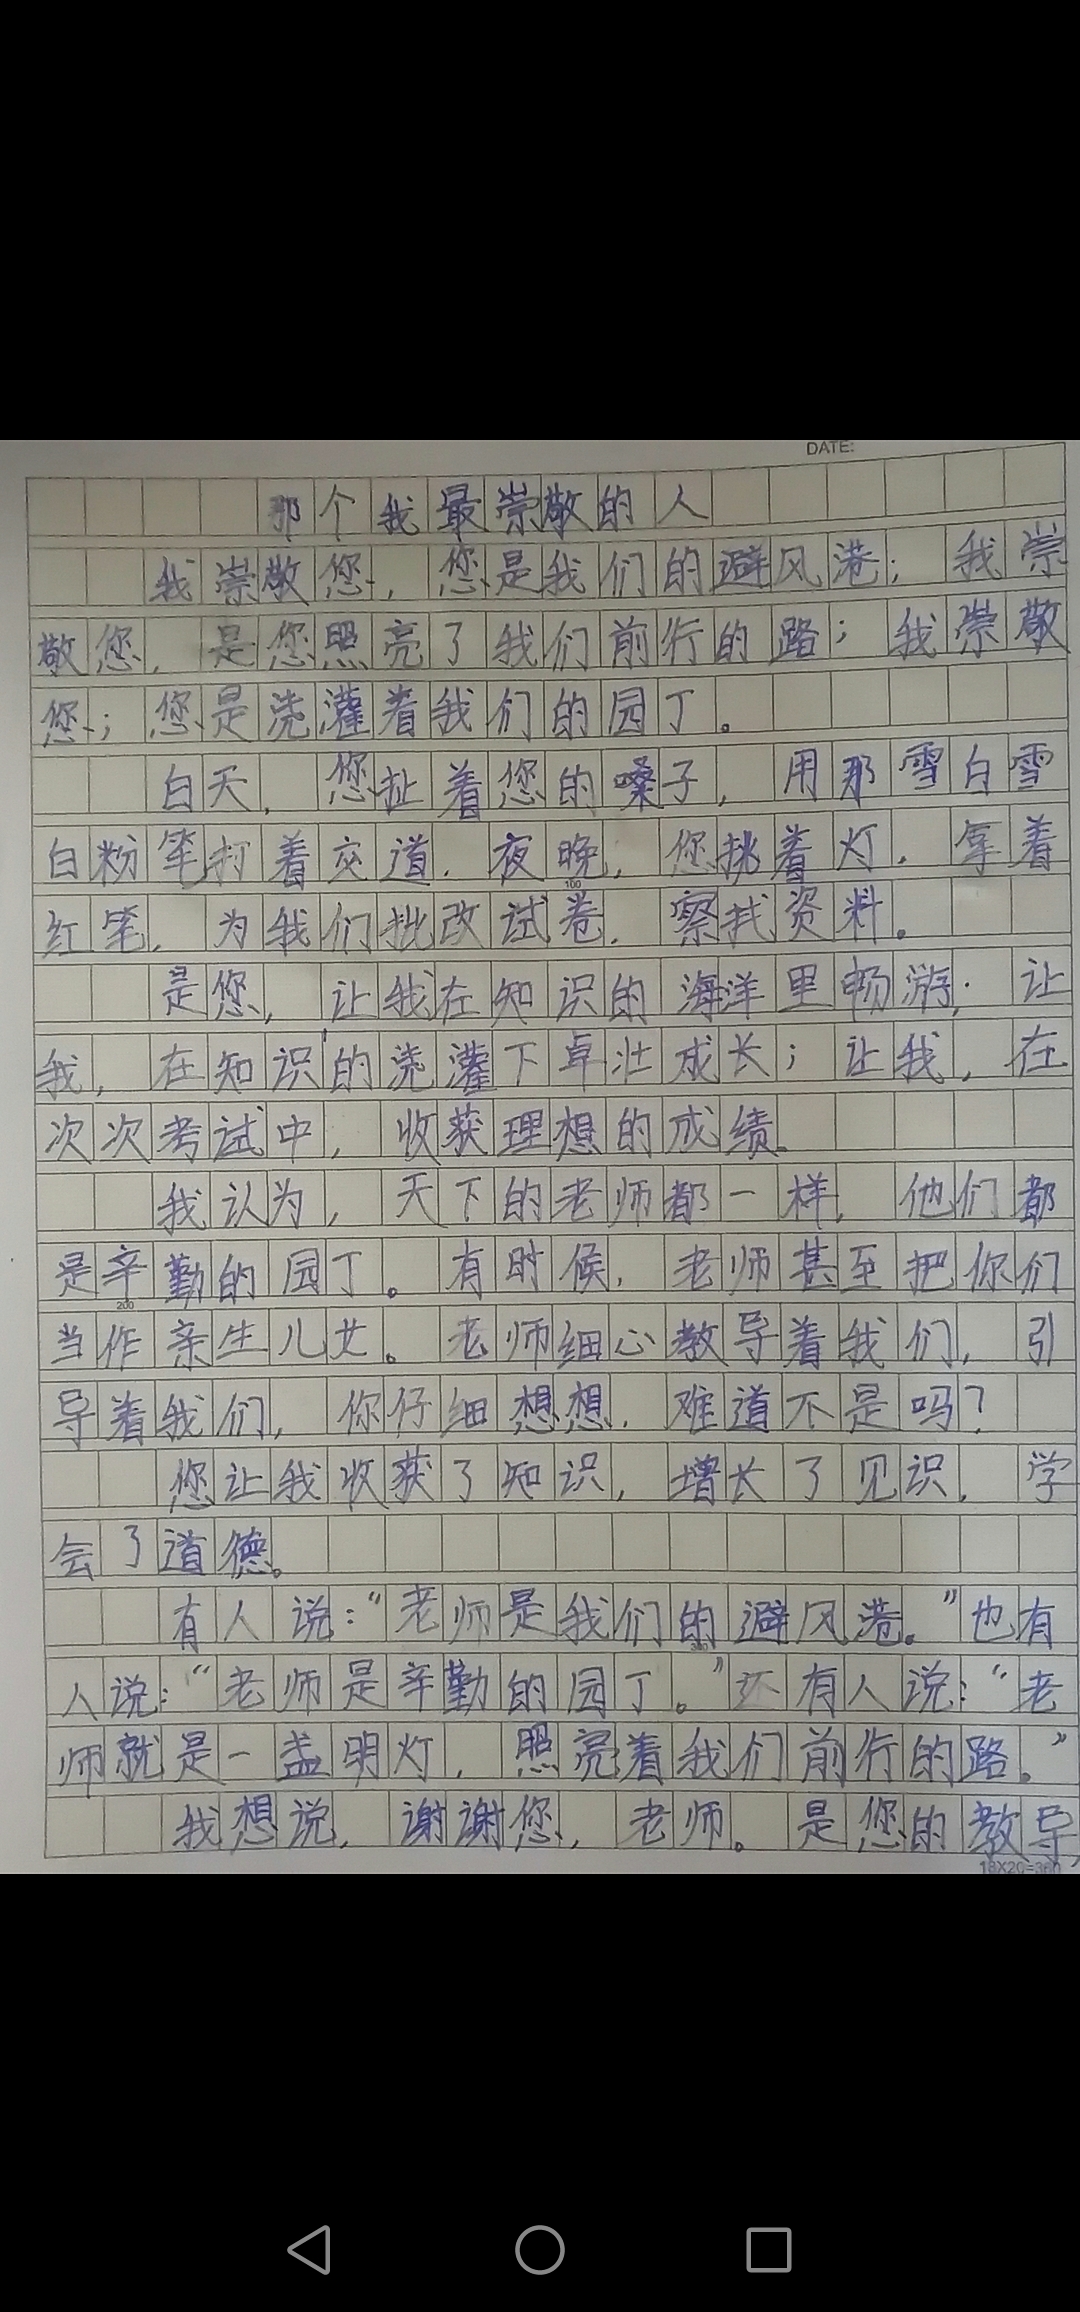 DATE:
那个我最崇敬的人
我崇敬您,您是我们的避风港;我崇
敬您,是您照亮了我们前行的路;我崇敬
您;您是浇灌着我们的园丁。
白天,您扯着您的嗓子,用那雪白雪
白粉笔打着交道.夜晚,您挑着灯.拿着
100
红笔,为我们批改试卷.察找资料。
是您,让我在知识的海洋里畅游.让
我,在知识的浇灌下卓壮成长;让我,在
次次考试中,收获理想的成绩。
我认为,天下的老师都一样,他们都
是辛勤的园丁。有时候,老师甚至把你们
200
当作亲生儿女。老师细心教导着我们,引
导着我们,你仔细想想.难道不是吗?
您让我收获了知识,增长了见识,学
会了道德。
有人说:“老师是我们的避风港。”也有
300
人说:“老师是辛勤的园丁。”还有人说:“老
师就是一盏明灯,照亮着我们前行的路。”
我想说,谢谢您,老师。是您的教导,
18X20=360